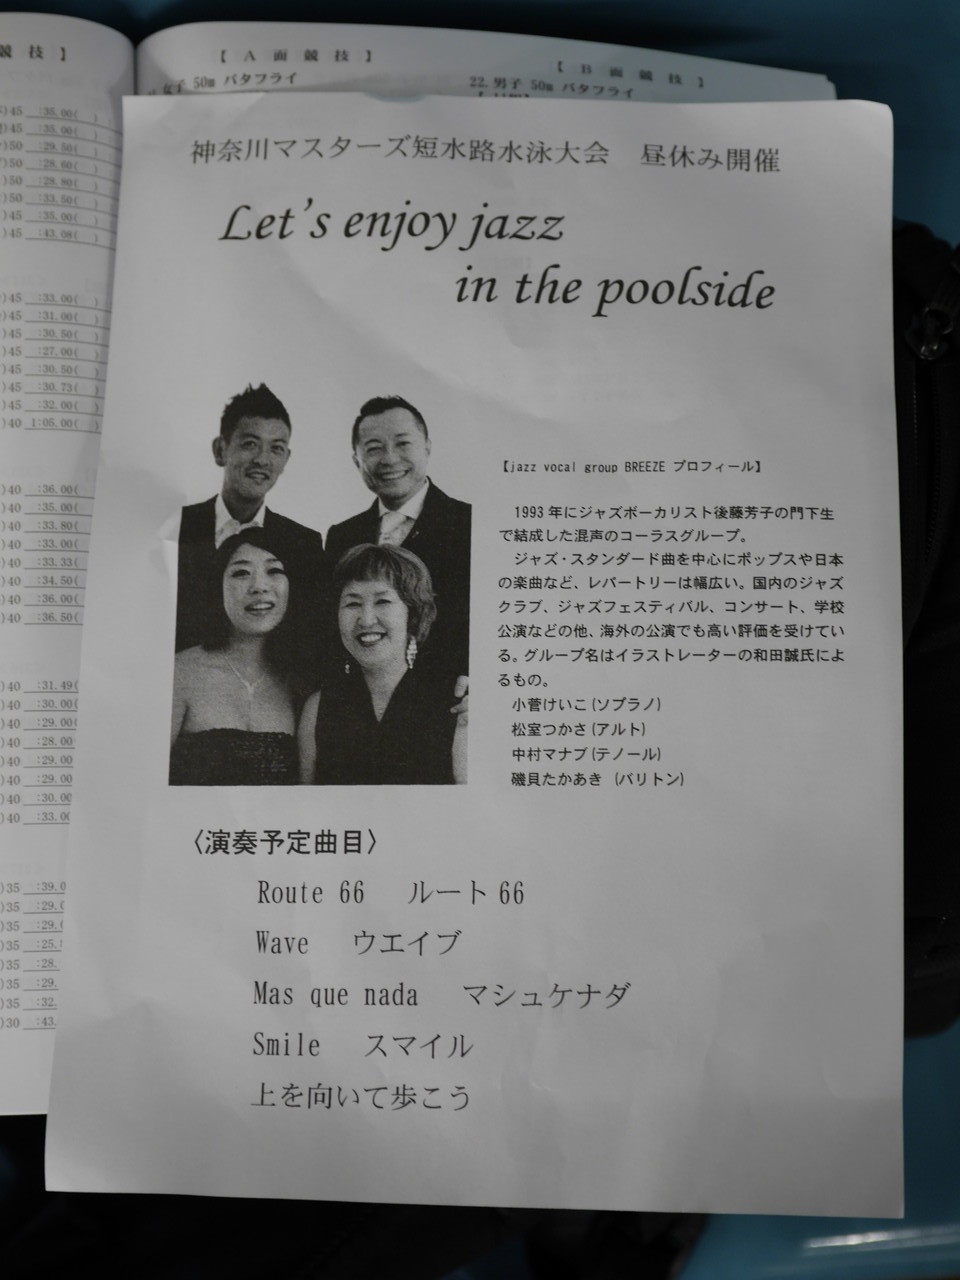 競 技 】
【 A 面 競 技 】
女子 50m バタフライ
【 B 面 競 技 】
22. 男子 50m バタフライ
)45 :35.00( )
)45 :35.00( )
)50 :29.50( )
)50 :28.60( )
)50 :28.80( )
)50 :33.50( )
)45 :35.00( )
)45 :43.08( )
)45 :33.00( )
)45 :31.00( )
)45 :30.50( )
)45 :27.00( )
)45 :30.50( )
)45 :30.73( )
)45 :32.00( )
)40 1:05.00( )
)40 :36.00(
)40 :35.00(
)40 :33.80
)40 :33.00(
)40 :33.33(
)40 :34.50(
)40 :36.00(
)40 :36.50(
)40 :31.49(
)40 :30.00(
)40 :29.00(
)40 :28.00
)40 :29.00
)40 :29.00
)40 :30.00
)40 :33.00
)35 :39.0
)35 :29.
)35 :29.
)35 :25.
)35 :28.
)35 :29.
)35 :32.
)30 :43.
神奈川マスターズ短水路水泳大会 昼休み開催
Let's enjoy jazz
in the poolside
【jazz vocal group BREEZE プロフィール】
1993年にジャズボーカリスト後藤芳子の門下生
で結成した混声のコーラスグループ。
ジャズ・スタンダード曲を中心にポップスや日本
の楽曲など、レパートリーは幅広い。国内のジャズ
クラブ、ジャズフェスティバル、コンサート、学校
公演などの他、海外の公演でも高い評価を受けてい
る。グループ名はイラストレーターの和田誠氏によ
るもの。
小菅けいこ(ソプラノ)
松室つかさ(アルト)
中村マナブ(テノール)
磯貝たかあき (バリトン)
〈演奏予定曲目〉
Route 66 ルート66
Wave ウエイブ
Mas que nada マシュケナダ
Smile スマイル
上を向いて歩こう